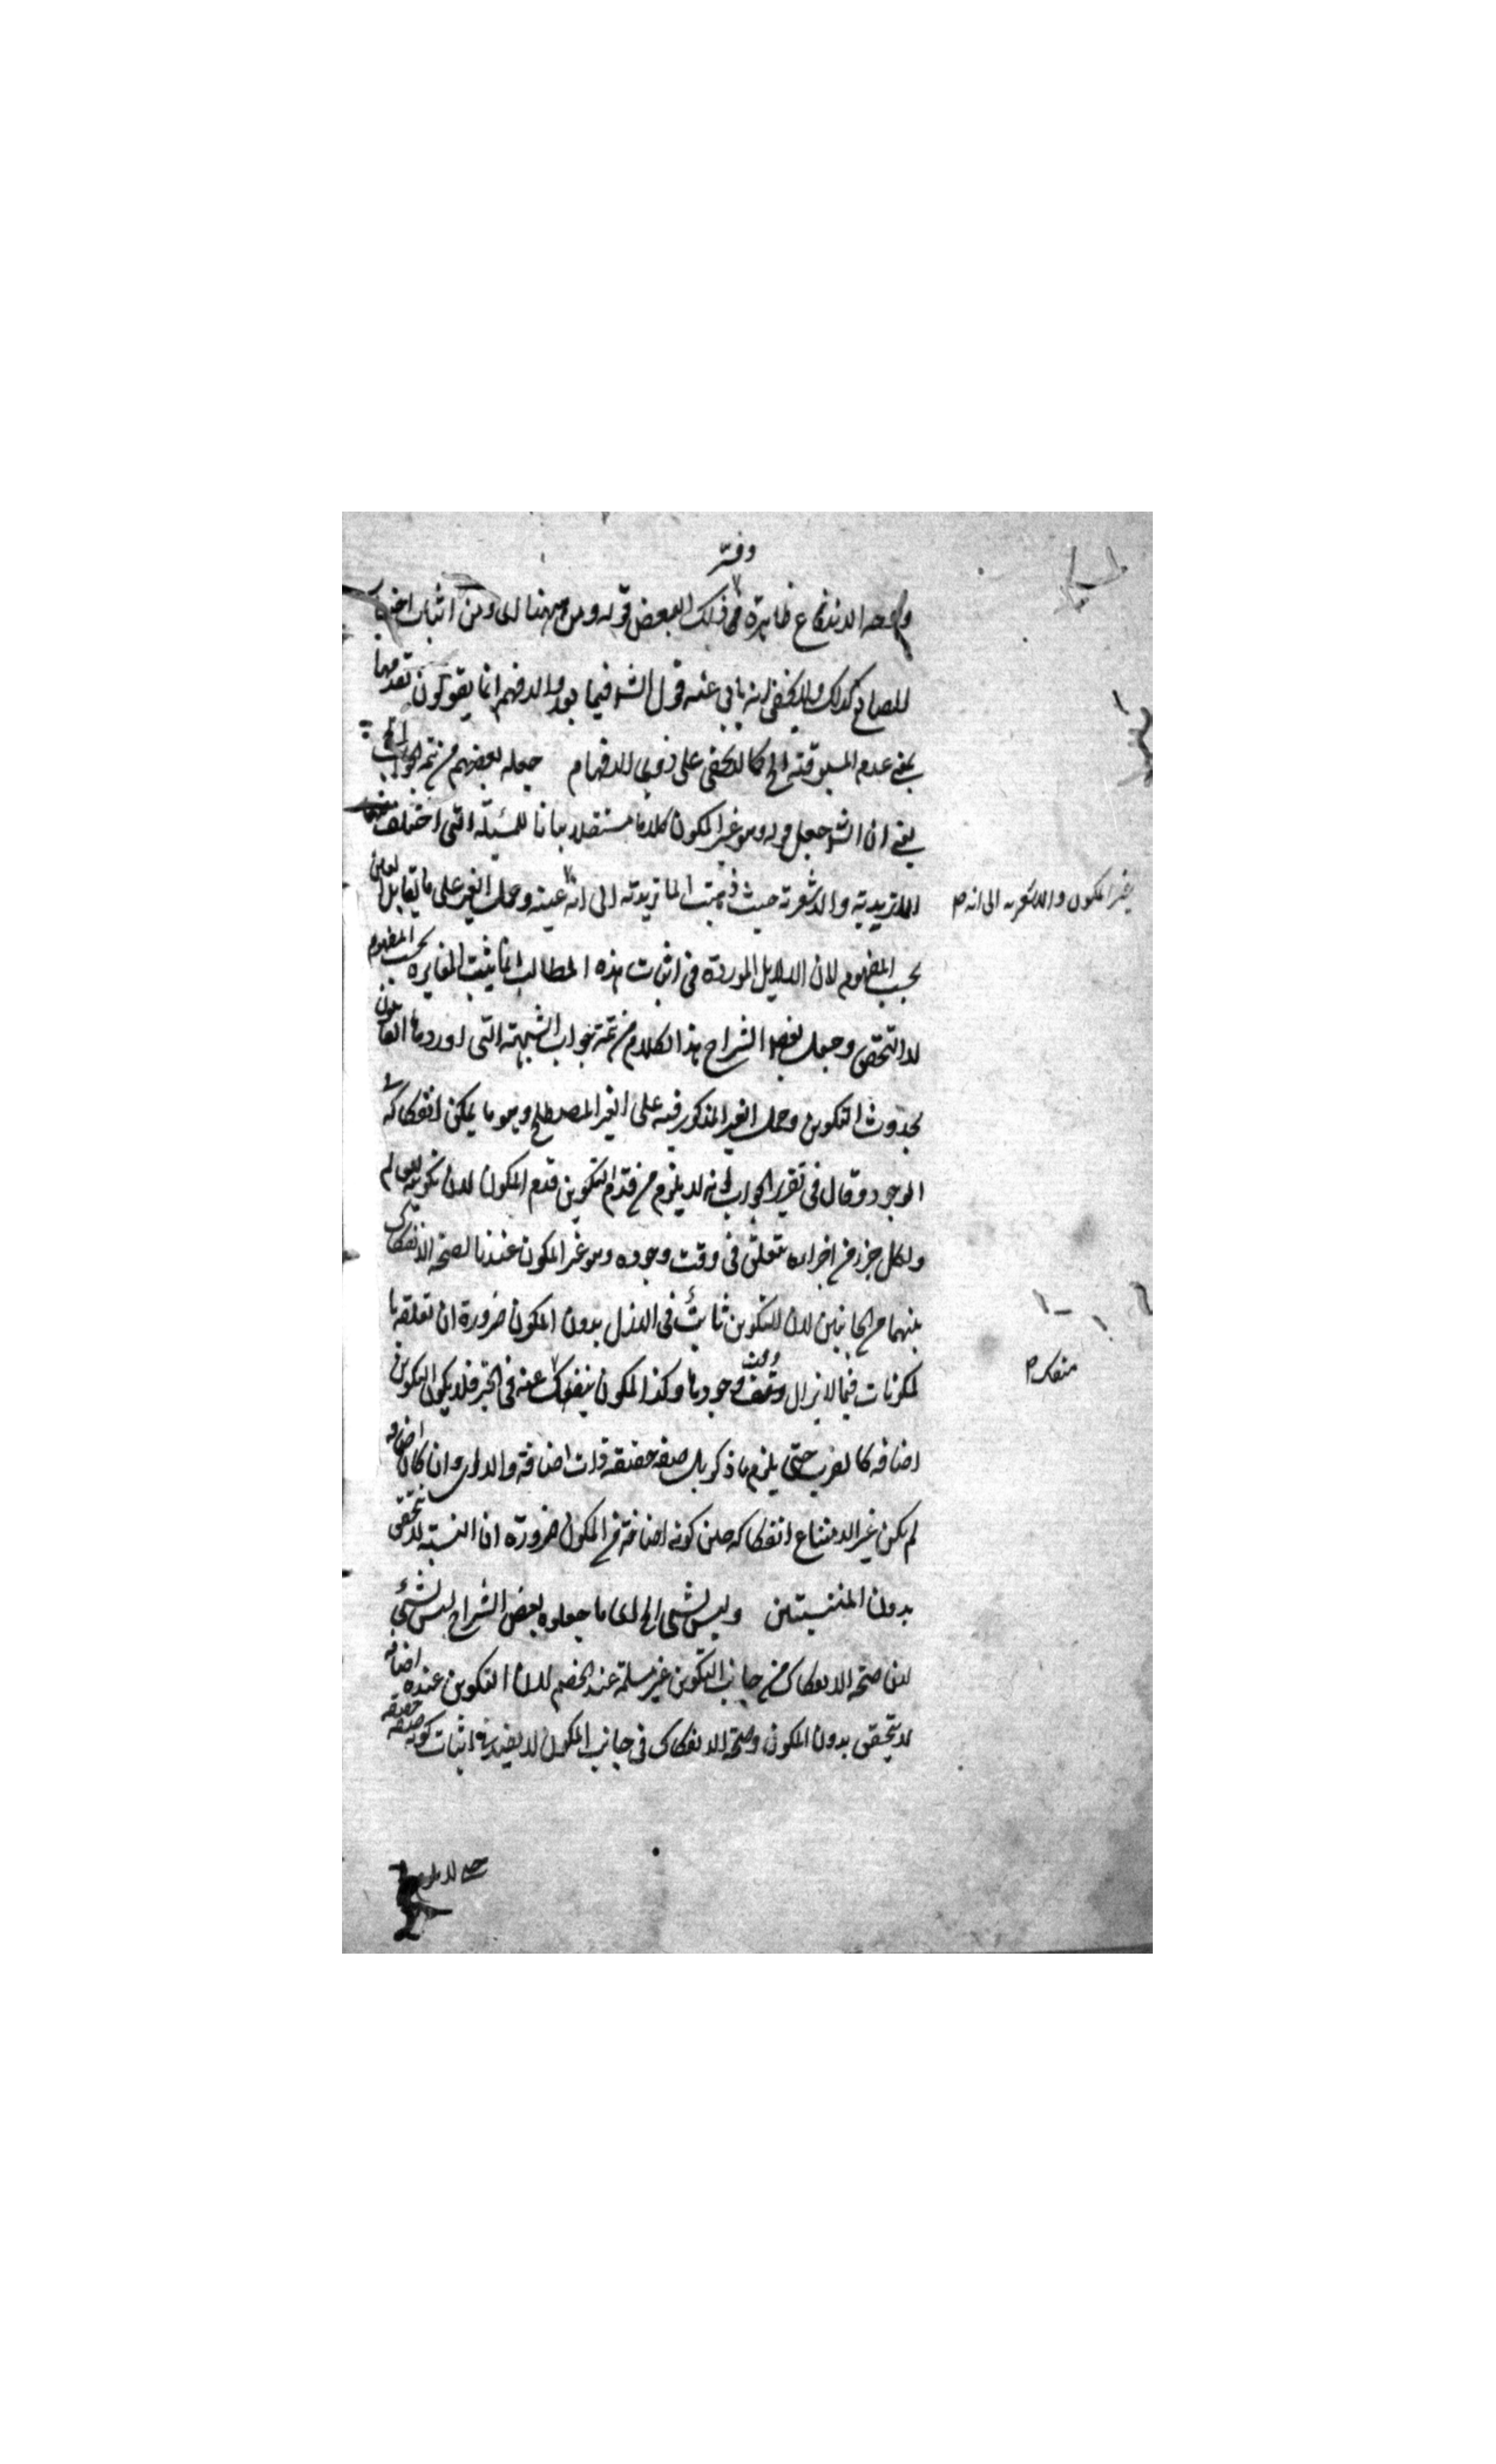 وفسر
وجه الاندفاع ظاهرة ذلك البعض قوله ومن ههنا اى ومن اثبات
للصانع كذلك ولا يخفى انه يابى عنه قول الش فيما بعد والا فهم انما يقولون بقدمها
بمعنى عدم المسبوقية الخ كما لا يخفى على ذوى الافهام جعله بعضهم من تتمة الجواب الخ
يعنى ان الش جعل قوله وهو غير المكون كلاما مستقلا بيانا للمسئلة التى اختلف فيها
الماتريدية والاشعرية حيث ذهبت الماتريدية الى انه عينه وحمل الغير على ما يقابل العين
غير المكون والاشعريه الى انه ص
بحسب المفهوم لان الدلايل الموردة فى اثبات هذه المطالب انما يثبت المغايرة بحسب المفهوم
لا التحقق وجعل بعض الشراح هذا الكلام من تتمة جواب الشبهة التى اوردها القائلون
بحدوث التكوين وحمل الغير المذكور فيه على الغير المصطلح وهو ما يمكن انفكاكه فى
الوجود وقال فى تقرير الجواب انه لا يلزم من قدم التكوين قدم المكون لان تكوينه للعالم
ولكل جزء من اجزاءه يتعلق فى وقت وجوده وهو غير المكون عندنا لصحة الانفكاك
بينهما من الجانبين لان التكوين ثابت فى الازل بدون المكون ضرورة ان تعلقه بالمكونات
فيما لا يزال وقت وجودها وكذا المكون ينفك عنه فى الحيز فلا يكون التكوين
منفك ص
اضافة كالضرب حتى يلزم ما ذكر بل صفة حقيقة ذات اضافة والا اى وان كان اضافة
لم يكن غير الامتناع انفكاكه حين كونه اضافة من المكون ضرورة ان النسبة لا يتحقق
بدون المنتسبين وليس بشئ الخ اى ما جعلوه بعض الشراح ليس بشئ
لان صحة الانفكاك من جانب التكوين غير مسلمة عند الخصم لان التكوين عنده اضافة
لا يتحقق بدون المكون وصحة الانفكاك فى جانب المكون لا يفيد فى اثبات كونه صفة حقيقة